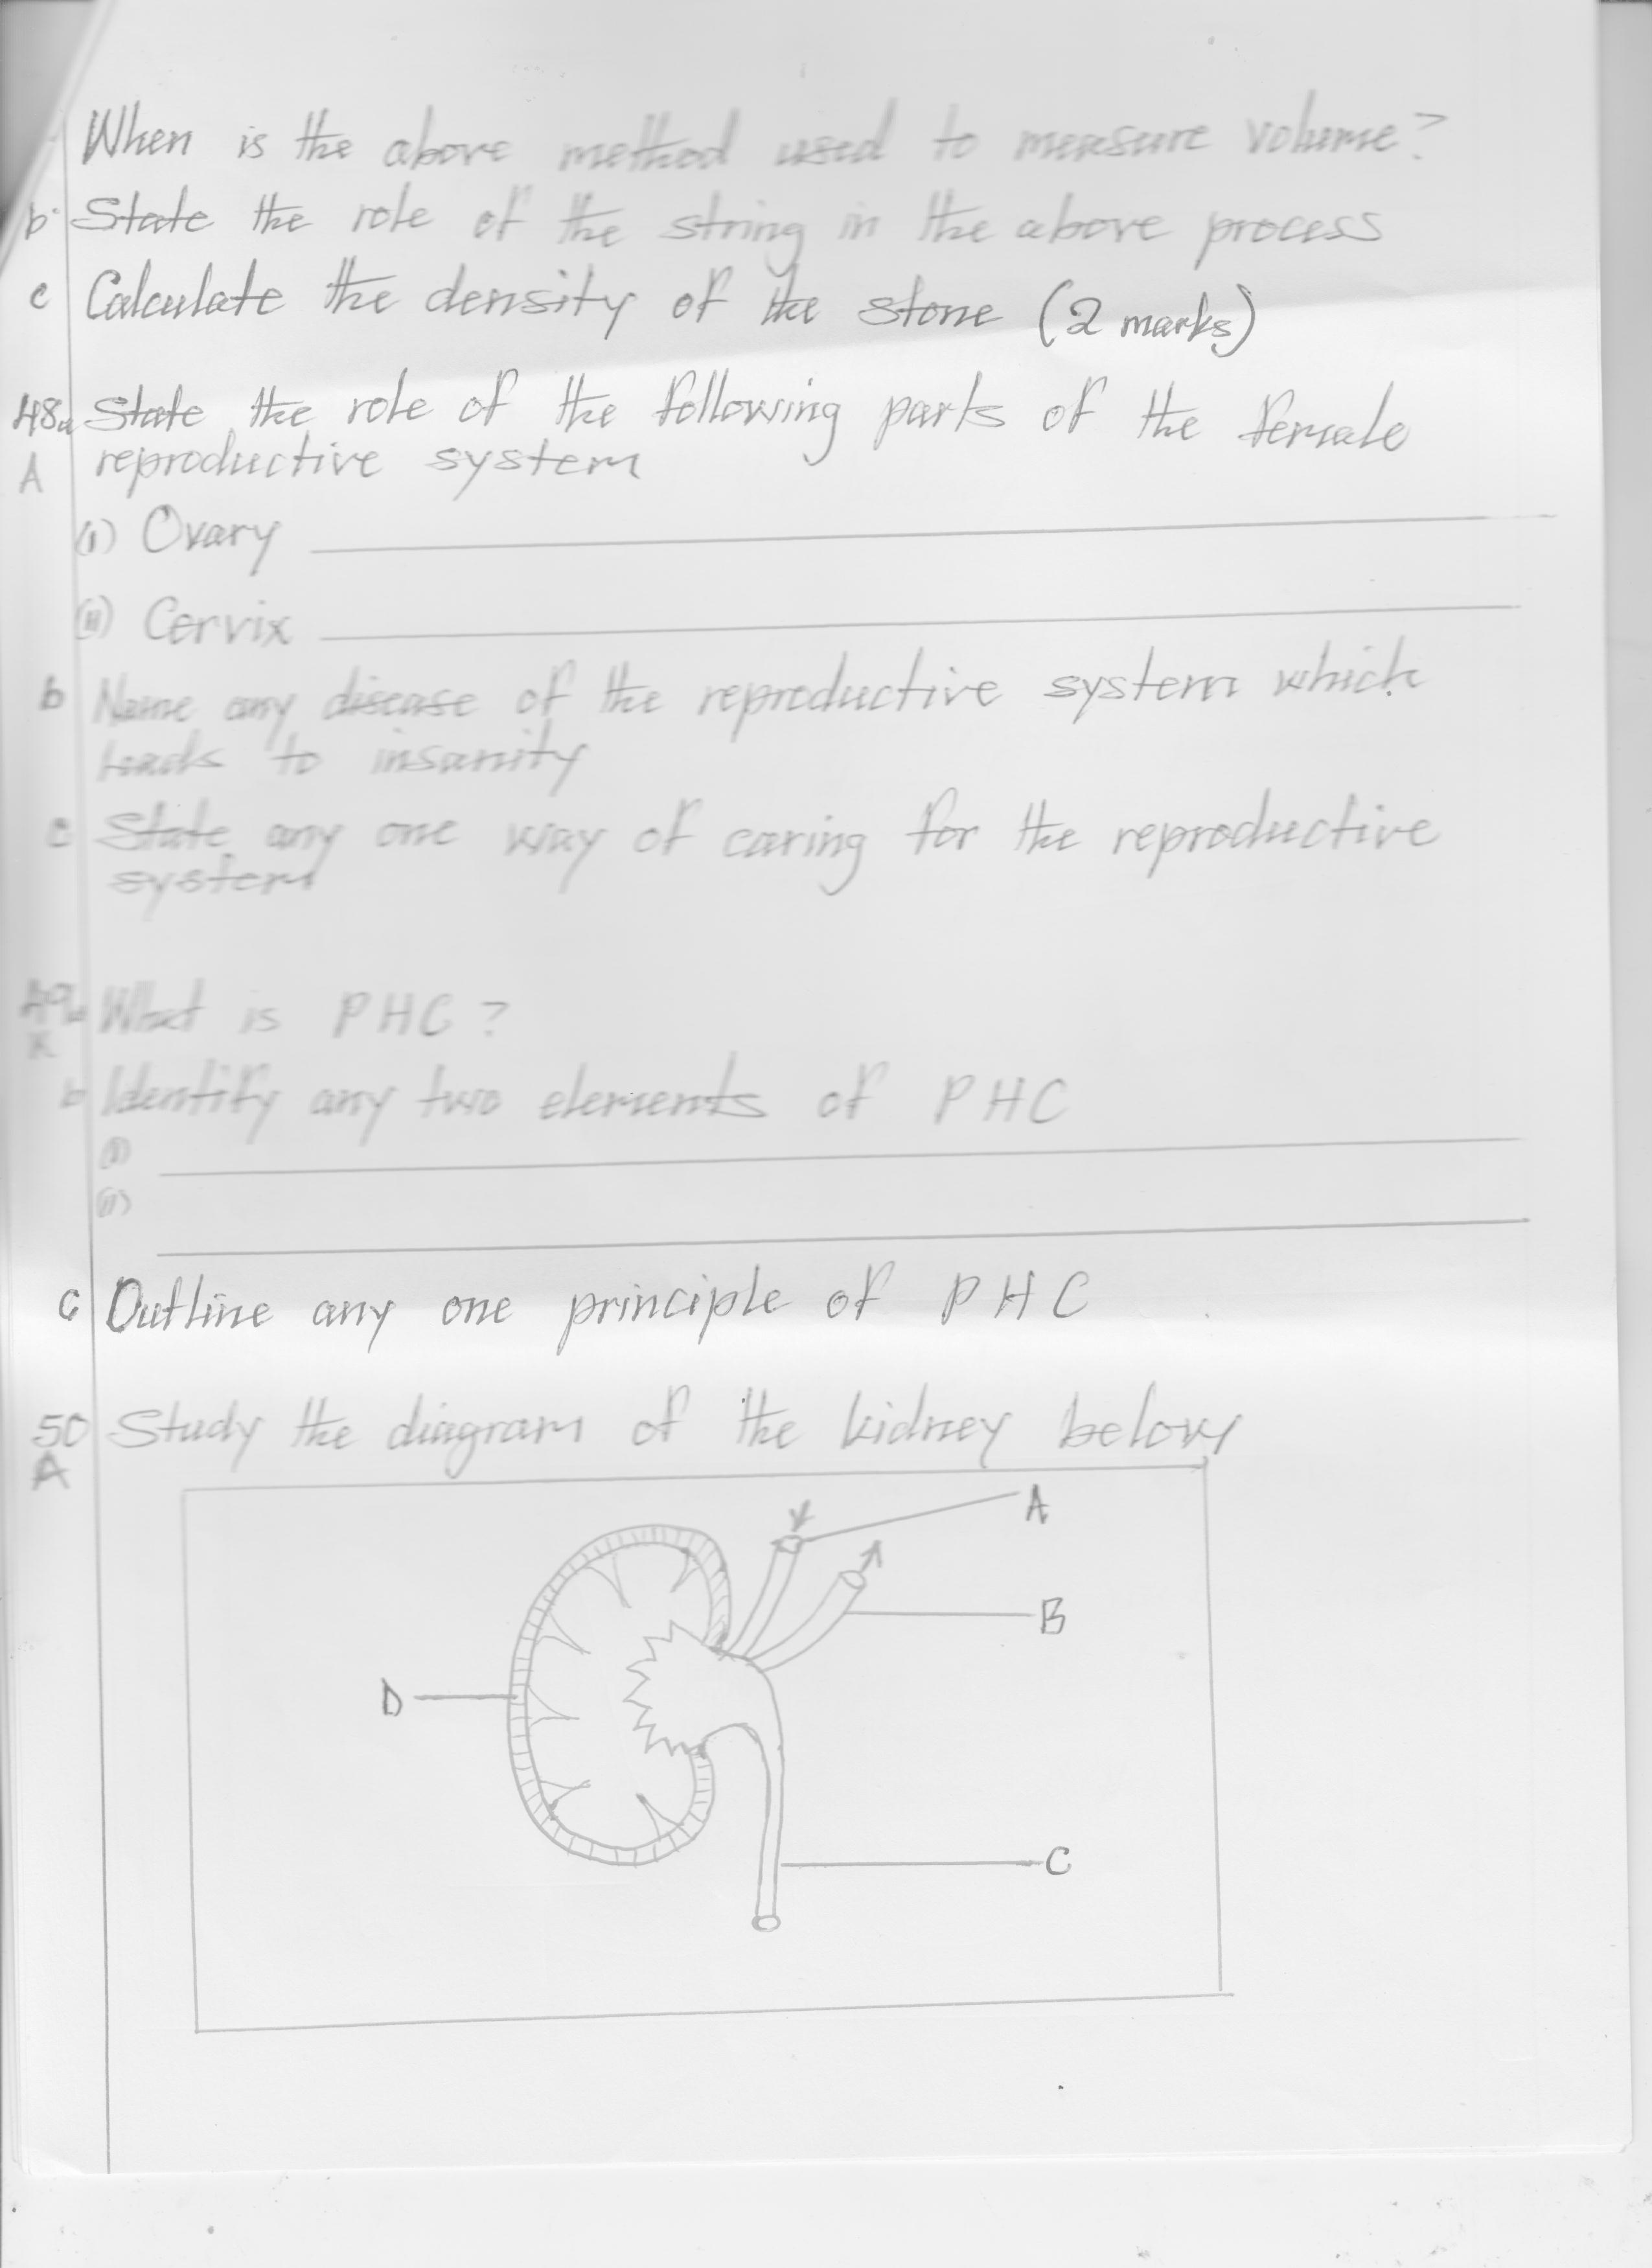 When is the above method used to measure volume?
b. State the role of the string in the above process
c Calculate the density of the stone (2 marks)
48a State the role of the following parts of the female
A reproductive system
(i) Ovary
(ii) Cervix
b Name any disease of the reproductive system which
leads to insanity
c State any one way of caring for the reproductive
system
49a What is PHC?
K
b Identify any two elements of PHC
(i)
(ii)
c Outline any one principle of PHC
50 Study the diagram of the kidney below
A
A
B
D
C